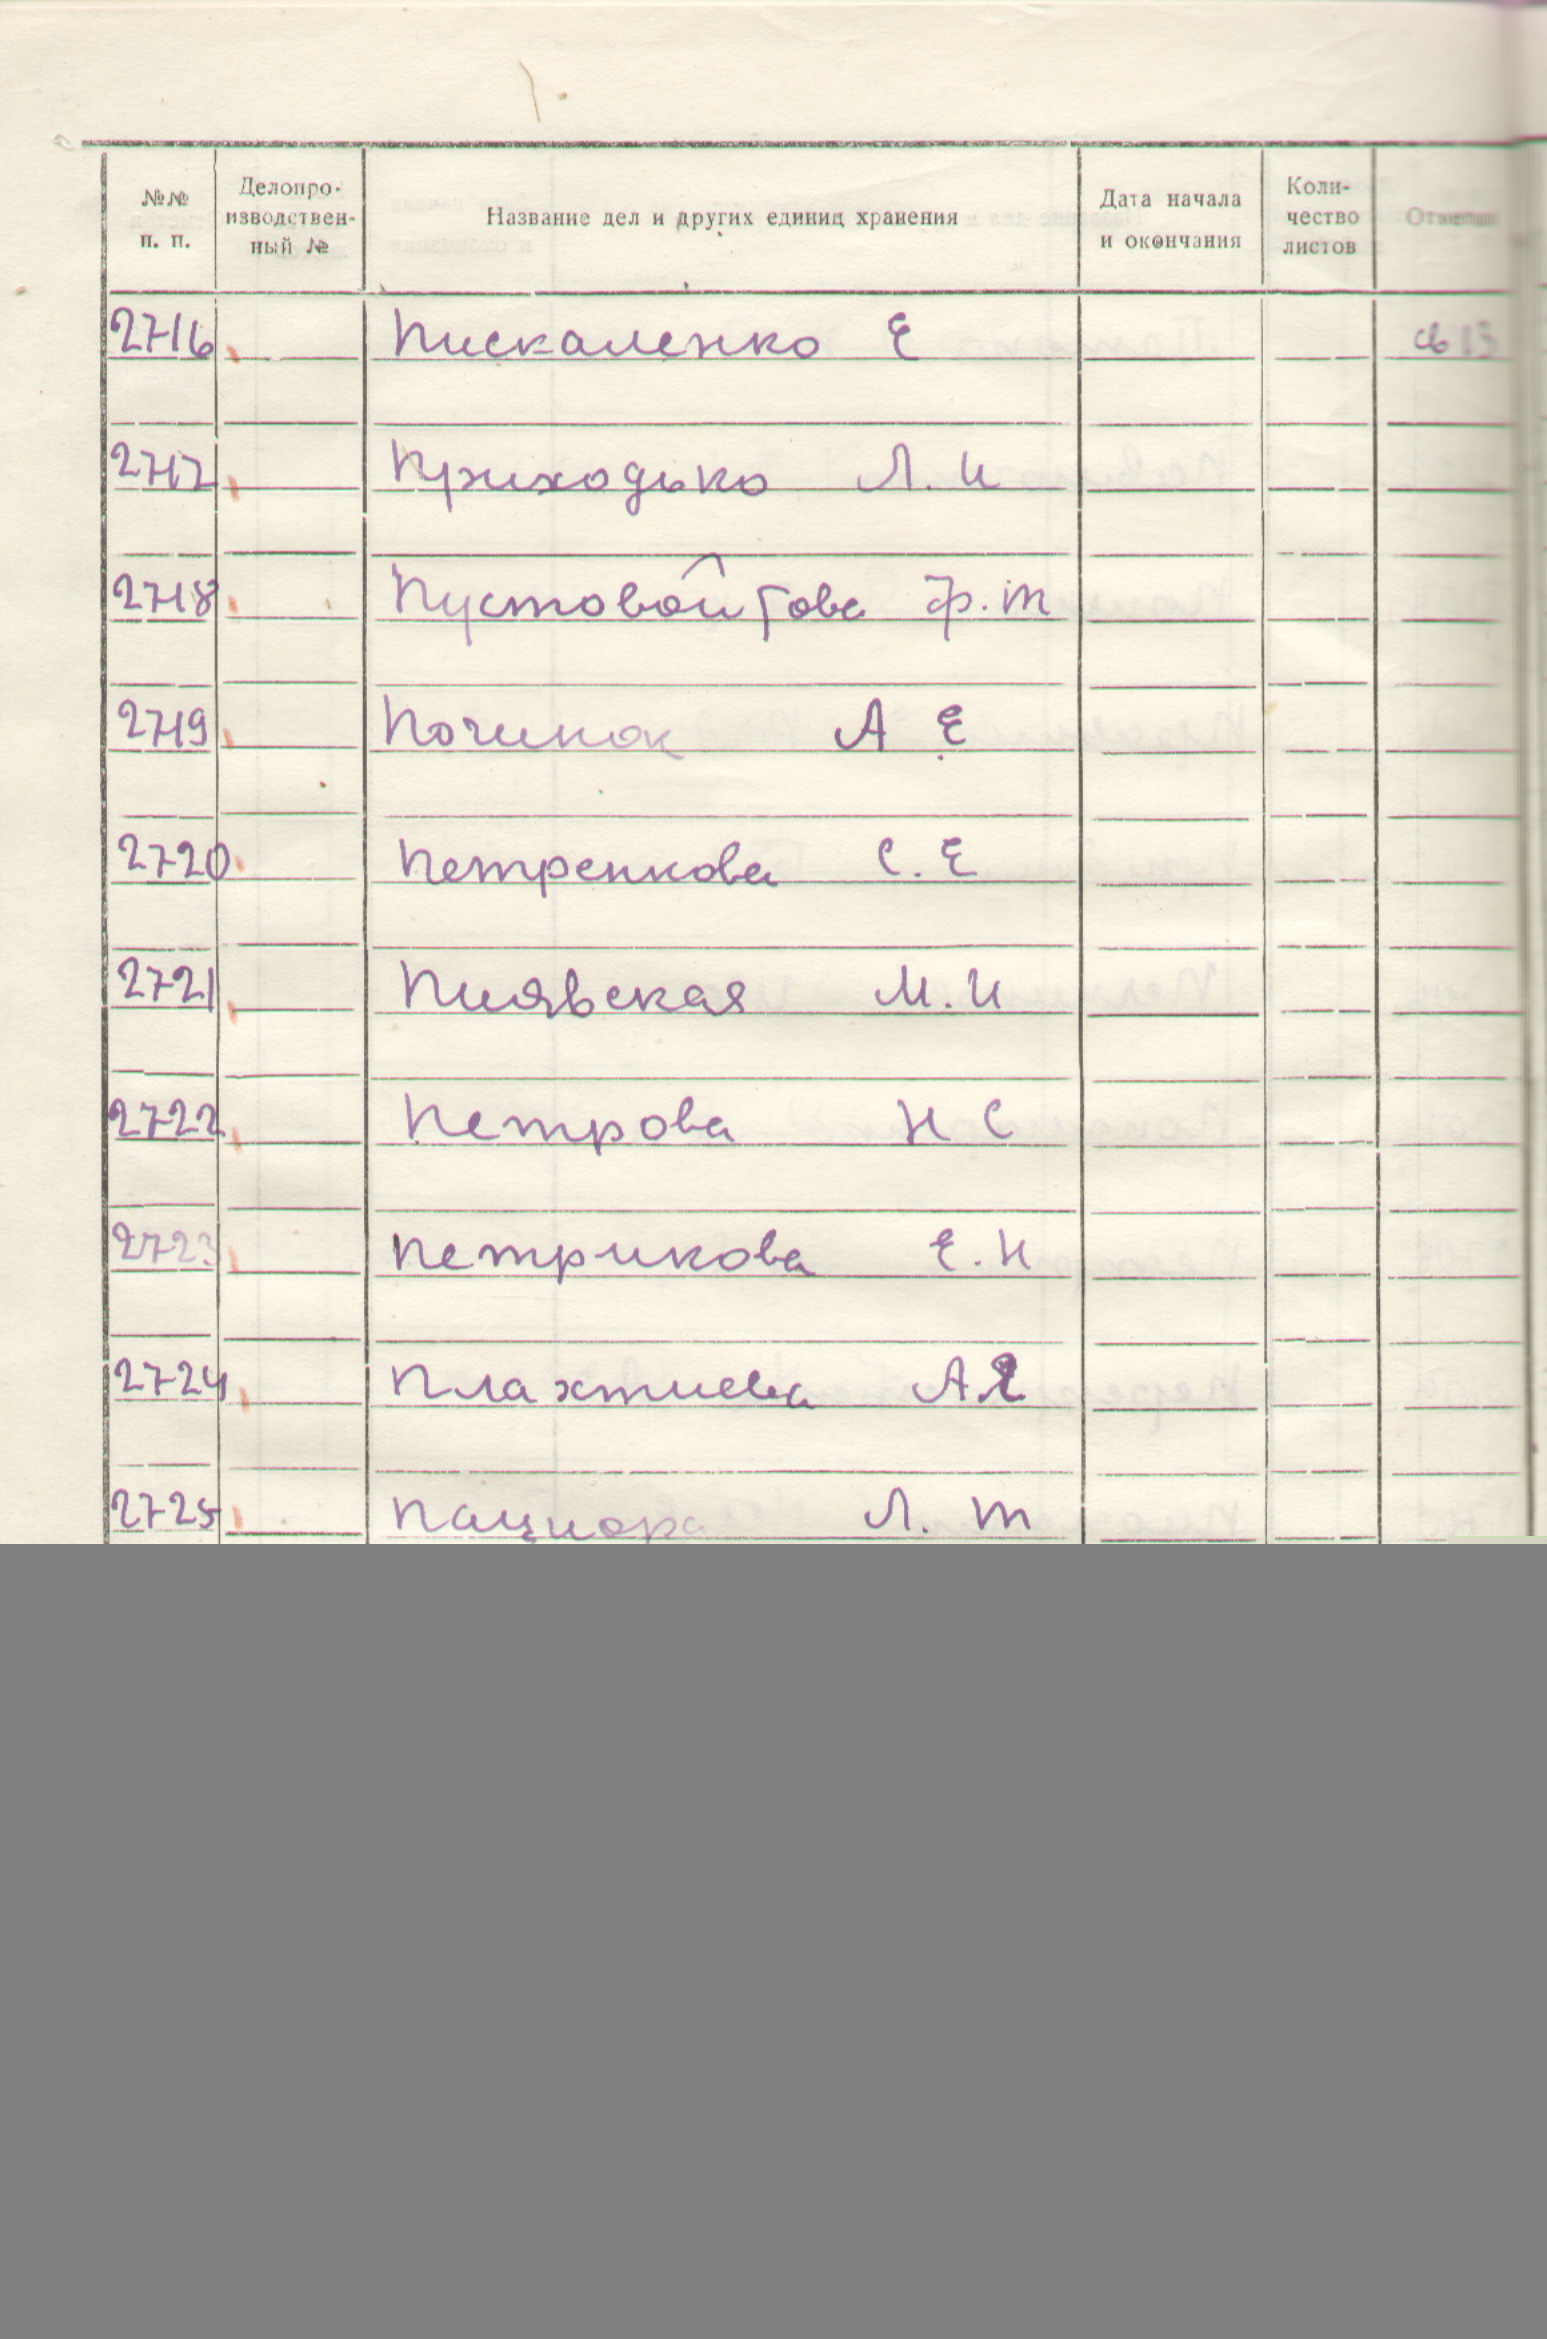 №№ п. п. Делопро-изводствен-ный № Название дел и других единиц хранения Дата начала и окончания Коли-чество листов Отметки
2716 Пискаленко Е св 13
2717 Приходько Л. И
2718 Пустовойтова Ф. Т
2719 Починок А Е
2720 Петренкова С. Е
2721 Пиявская М. И
2722 Петрова Н С
2723 Петрикова Е. Н
2724 Плахтиева А
2725 Пациора Л. Т